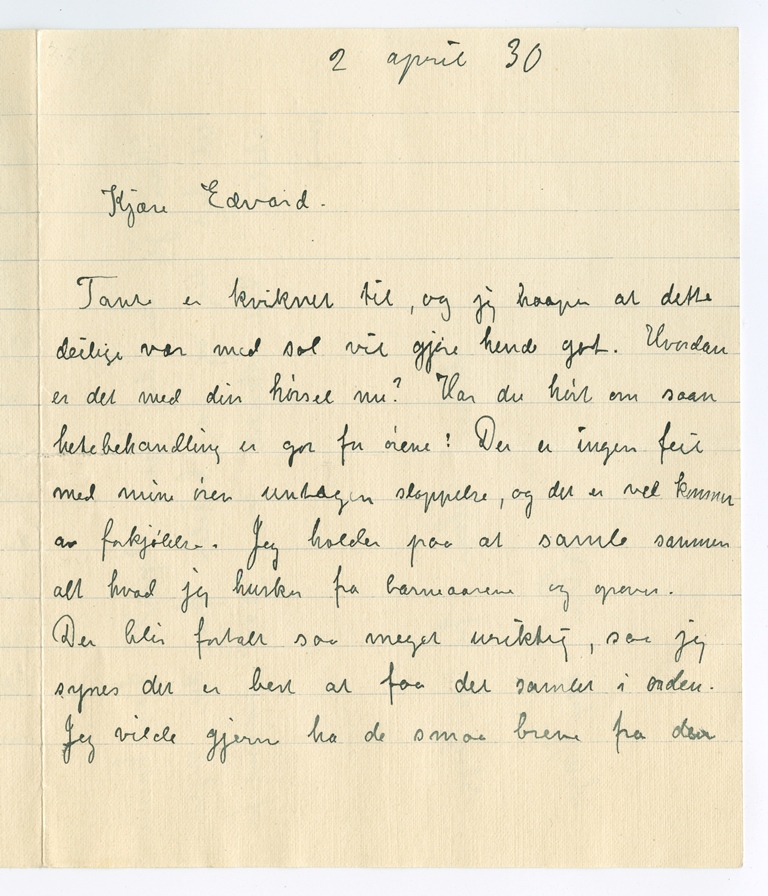 2 april 30
Kjære Edvard.
Tante er kviknet til, og jeg haaper at dette
deilige vær med sol vil gjøre hende godt. Hvordan
er det med din hørsel nu? Har du hørt om saan
hetebehandling er god for ørene? Der er ingen feil
med mine ører untagen stoppelse, og det er vel kommet
av forkjølelse. Jeg holder paa at samle sammen
alt hvad jeg husker fra barneaarene og opover.
Der blir fortalt saa meget uriktig, saa jeg
synes det er best at faa det samlet i orden.
Jeg vilde gjerne ha de smaa brevene fra den